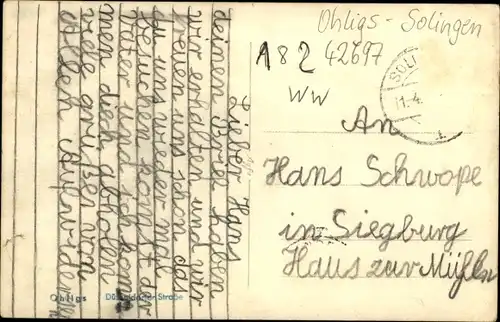 Lieber Hans
deinen Brief haben
wir erhalten und wir
freuen uns schon das
du uns wieder mal
besuchen kommst der
Vater und ich kom
men dich abholen
viele grüßen von
Allen Aufwieder
Ohligs Düsseldorfer Straße
Ohligs - Solingen
A 8 2 42697
WW
SOLI
11.4.
An
Hans Schwope
in Siegburg
Haus zur Mühlen